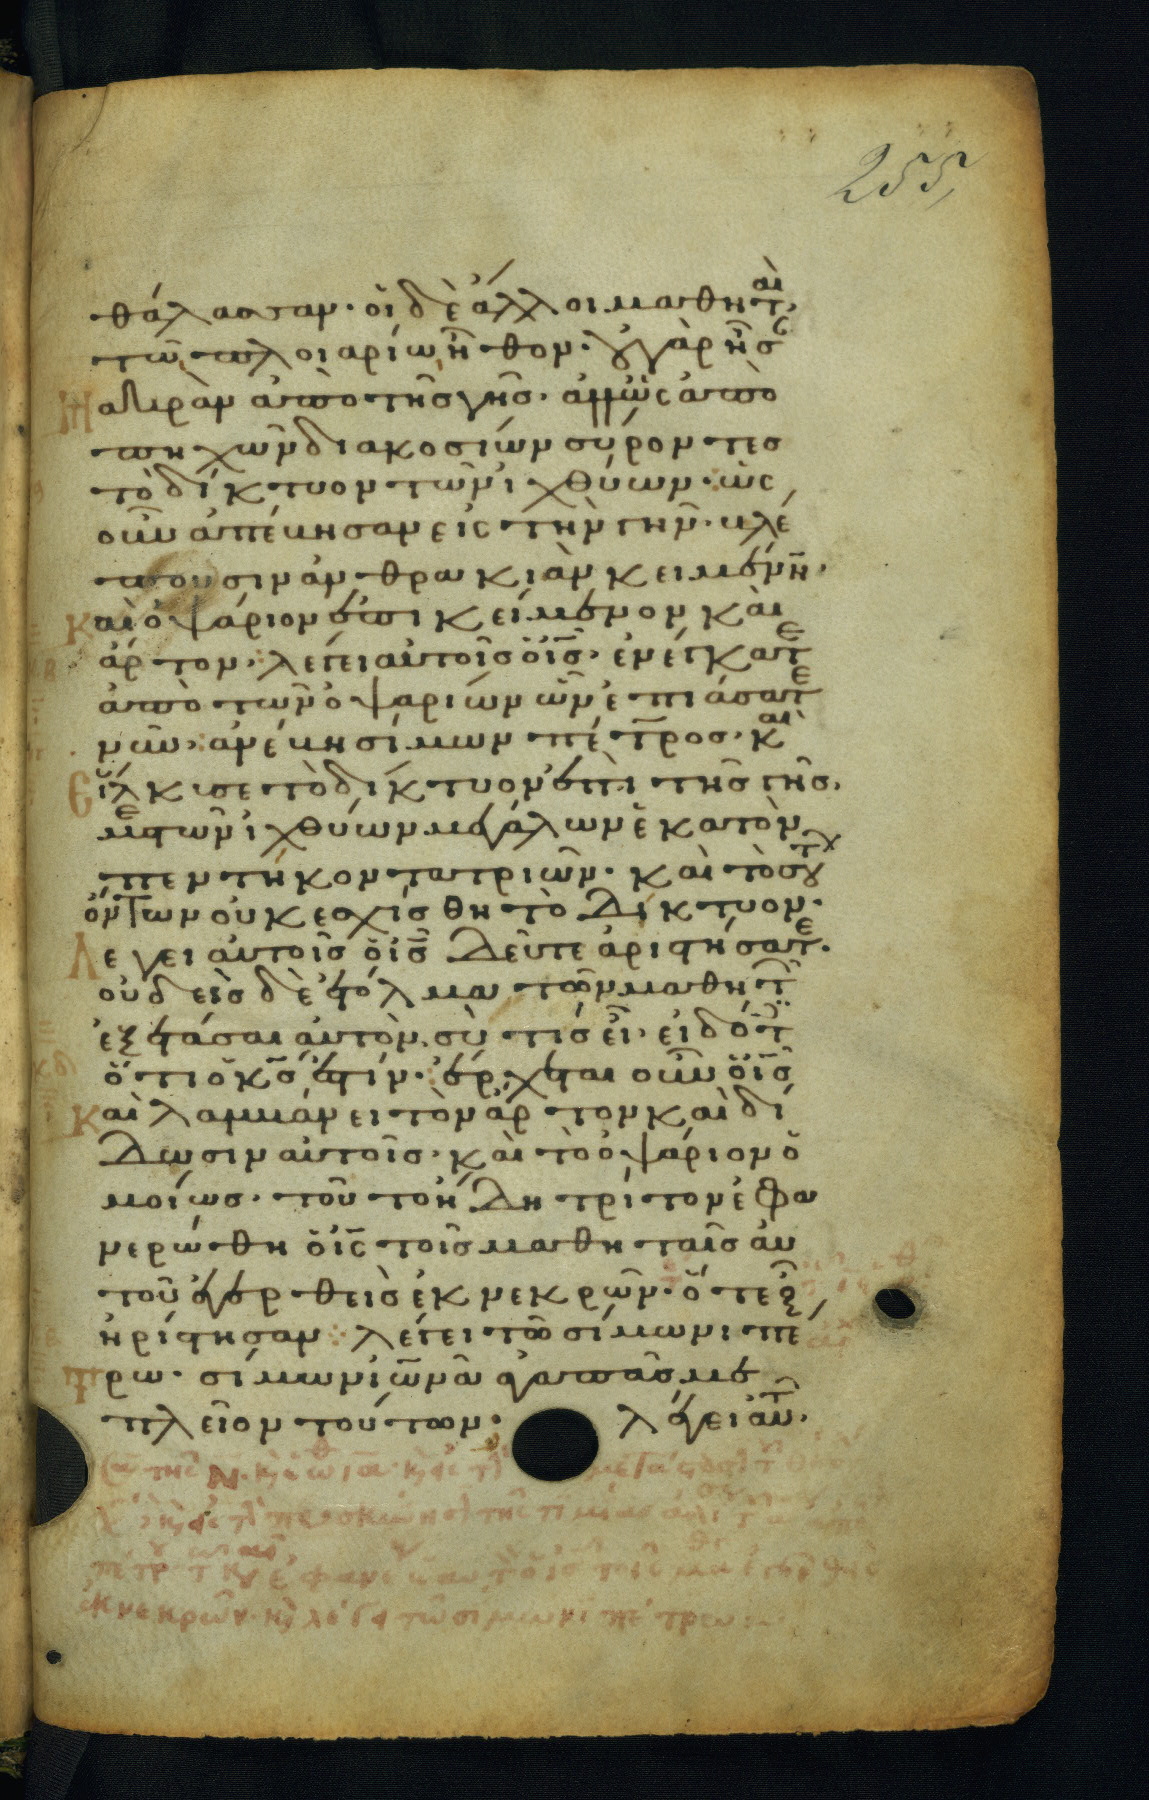 255
θάλασσαν· οἱ δὲ ἄλλοι μαθητ,αὶ
τῶ πλοιαρίω ἦλθον· οὐ γὰρ ἦσ
μακρὰν ἀπὸ τῆς γῆς· ἀλλ' ὡς ἀπὸ
πηχῶν διακοσίων σύροντες
τὸ δίκτυον τῶν ἰχθύων· ὡς
οὖν ἀπέβησαν εἰς τὴν γῆν· βλέ
πουσιν ἀνθρακιὰν κειμένην·
καὶ ὀψάριον ἐπικείμενον καὶ
ἄρτον· λέγει αὐτοῖς ὁ ἰς· ἐνέγκατε
ἀπὸ τῶν ὀψαρίων ὧν ἐπιάσατε
νῦν· ἀνέβη σίμων πέτρος· καὶ
εἵλκυσε τὸ δίκτυον ἐπὶ τῆς γῆς·
μεστὸν ἰχθύων μεγάλων ἑκατὸν
πεντήκοντα τριῶν· καὶ τοσούτ
ὄντων οὐκ ἐσχίσθη τὸ δίκτυον·
Λέγει αὐτοῖς ὁ ἰς δεῦτε ἀριστήσατε·
οὐδεὶς δὲ ἐτόλμα τῶν μαθητ
ἐξετάσαι αὐτὸν σὺ τίς εἶ· εἰδότ
ὅτι ὁ κς ἐστίν· ἔρχεται οὖν ὁ ἰς
καὶ λαμβάνει τὸν ἄρτον καὶ δί
δωσιν αὐτοῖς· καὶ τὸ ὀψάριον ὁ
μοίως· τοῦτο ἤδη τρίτον ἐφα
νερώθη ὁ ἰς τοῖς μαθηταῖς αὐ
τοῦ ἐγερθεὶς ἐκ νεκρῶν· ὅτε
ἠρίστησαν λέγει τῶ σίμωνι πέ
τρω· σίμων ἰωνᾶ ἀγαπᾶς με
πλεῖον τούτων· λέγει αὐτ·
ἐκ νεκρῶν· κ λέγει τῶ σίμωνι πέτρω